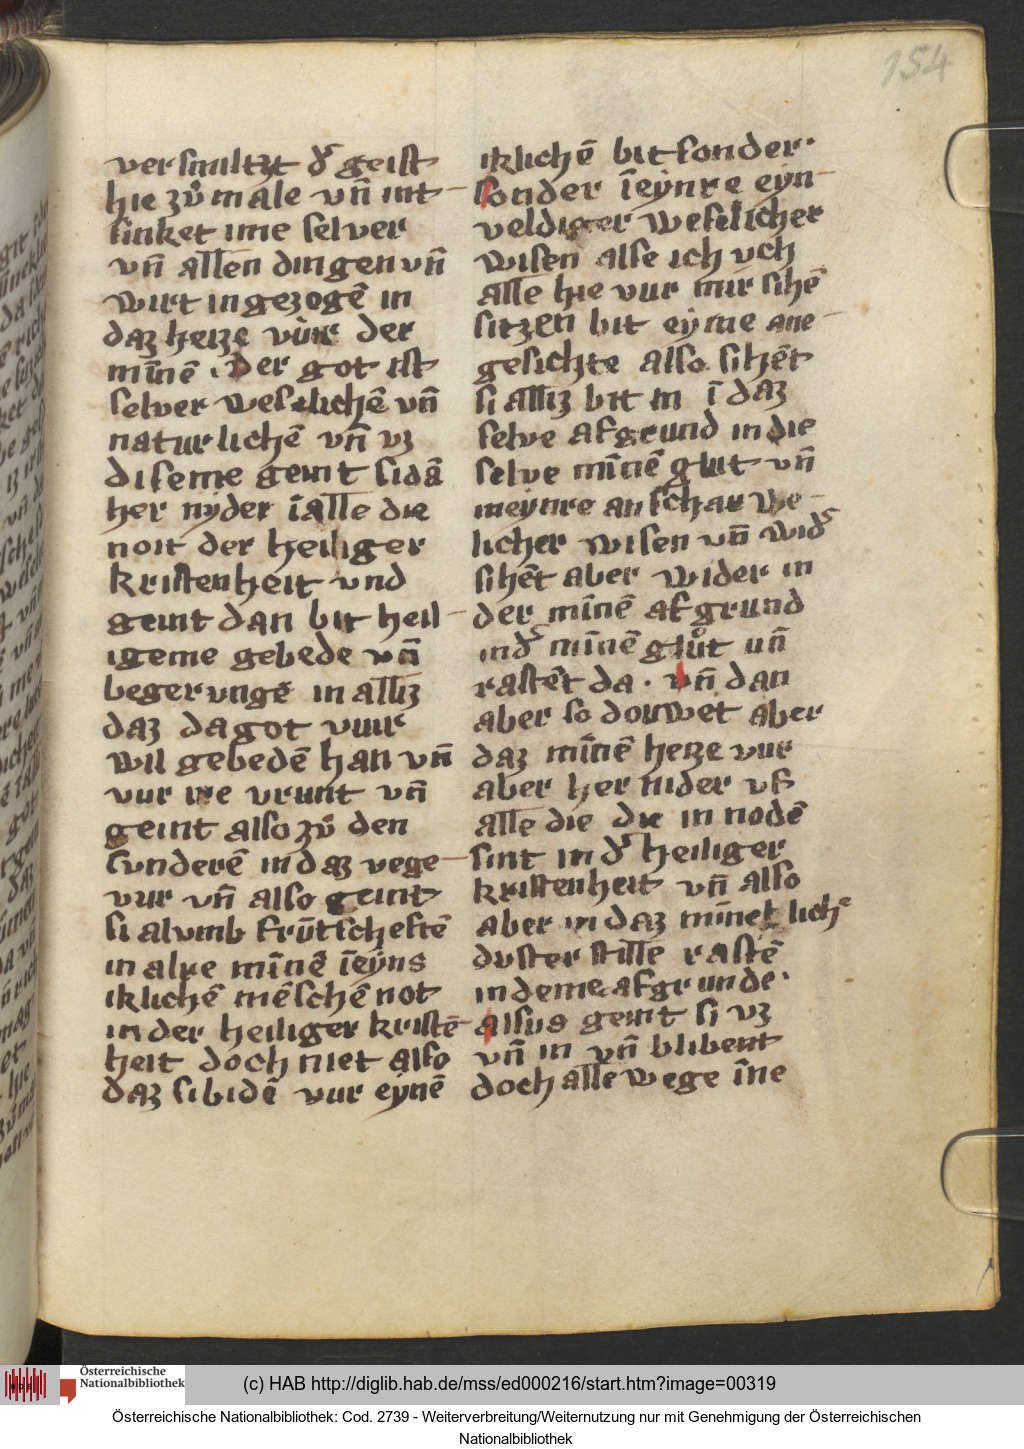 154
versmiltzt d᷑ geist
hie zuͦ male vn̄ int
sinket ime selver
vn̄ allen dingen vn̄
wirt in gezogē in
daz heize vuͥr der
minnē . Der got ist
selver weselichē vn̄
naturlichē vn̄ vz
diseme geint si dā
her nyder ī alle die
noit der heiliger
kristenheit vnd
geint dan bit heil
igeme gebede vn̄
begerungē in alliz
daz da got vuur
wil gebedē han vn̄
vur ire vrunt vn̄
geint also zuͦ den
sunderē in daz vege
vur vn̄ also geint
si al vmb frūtschefte
in alre mīnē ī eyns
iklichē mēschē not
in der heiliger kristē
heit doch niet also
daz si bidē vur eynē
iklichē bit sonder
sonder ī eynre eyn
veldiger weselicher
wisen alse ich vch
alle hie vur mir sihē
sitzen bit eyme ane
gesichte also sihēt
si alliz bit in ī daz
selve afgrund in die
selve mīnē glut vn̄
in eynre anschauwe
licher wisen vn̄ wid᷑
sihēt aber wider in
der mīnē afgrund
in d᷑ mīnē gluͦt un̄
rastēt da . vn̄ dan
aber so douwet aber
daz mīnē heize vur
aber her nider vf
alle die die in nodē
sint in d᷑ heiliger
kristenheit vn̄ also
aber in daz mīnetlich᷑
duster stille rastē
in deme afgrunde .
alsus geint si vz
vn̄ in vn̄ blibent
doch alle wege īne
Österreichische
Nationalbibliothek
(c) HAB http://diglib.hab.de/mss/ed000216/start.htm?image=00319
Österreichische Nationalbibliothek: Cod. 2739 - Weiterverbreitung/Weiternutzung nur mit Genehmigung der Österreichischen
Nationalbibliothek